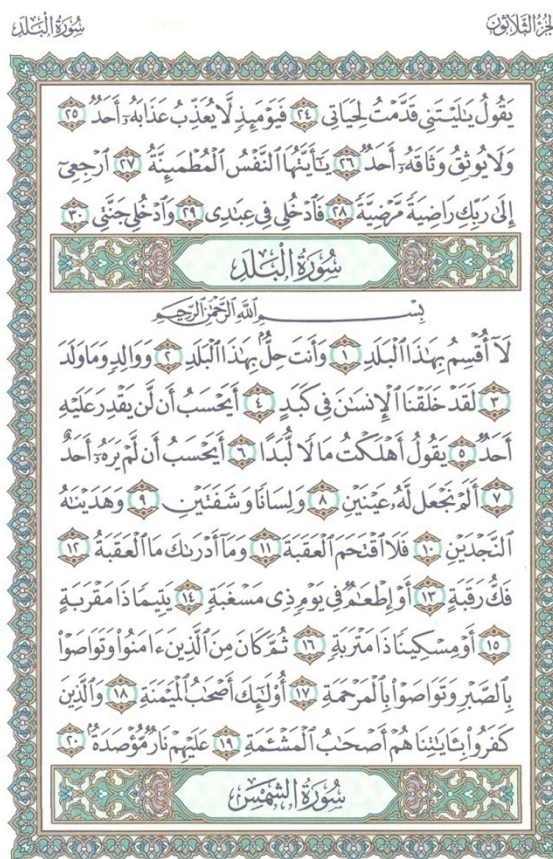 سُورَةُ الْبَلَدِ الجُزْءُ الثَّلَاثُونَ
يَقُولُ يَٰلَيْتَنِى قَدَّمْتُ لِحَيَاتِى ٢٤ فَيَوْمَئِذٍ لَّا يُعَذِّبُ عَذَابَهُۥٓ أَحَدٌ ٢٥
وَلَا يُوثِقُ وَثَاقَهُۥٓ أَحَدٌ ٢٦ يَٰٓأَيَّتُهَا ٱلنَّفْسُ ٱلْمُطْمَئِنَّةُ ٢٧ ٱرْجِعِىٓ
إِلَىٰ رَبِّكِ رَاضِيَةً مَّرْضِيَّةً ٢٨ فَٱدْخُلِى فِى عِبَٰدِى ٢٩ وَٱدْخُلِى جَنَّتِى ٣٠
سُورَةُ الْبَلَدِ
بِسْمِ ٱللَّهِ ٱلرَّحْمَٰنِ ٱلرَّحِيمِ
لَآ أُقْسِمُ بِهَٰذَا ٱلْبَلَدِ ١ وَأَنتَ حِلٌّۢ بِهَٰذَا ٱلْبَلَدِ ٢ وَوَالِدٍ وَمَا وَلَدَ
٣ لَقَدْ خَلَقْنَا ٱلْإِنسَٰنَ فِى كَبَدٍ ٤ أَيَحْسَبُ أَن لَّن يَقْدِرَ عَلَيْهِ
أَحَدٌ ٥ يَقُولُ أَهْلَكْتُ مَالًا لُّبَدًا ٦ أَيَحْسَبُ أَن لَّمْ يَرَهُۥٓ أَحَدٌ
٧ أَلَمْ نَجْعَل لَّهُۥ عَيْنَيْنِ ٨ وَلِسَانًا وَشَفَتَيْنِ ٩ وَهَدَيْنَٰهُ
ٱلنَّجْدَيْنِ ١٠ فَلَا ٱقْتَحَمَ ٱلْعَقَبَةَ ١١ وَمَآ أَدْرَىٰكَ مَا ٱلْعَقَبَةُ ١٢
فَكُّ رَقَبَةٍ ١٣ أَوْ إِطْعَٰمٌ فِى يَوْمٍ ذِى مَسْغَبَةٍ ١٤ يَتِيمًا ذَا مَقْرَبَةٍ
١٥ أَوْ مِسْكِينًا ذَا مَتْرَبَةٍ ١٦ ثُمَّ كَانَ مِنَ ٱلَّذِينَ ءَامَنُوا۟ وَتَوَاصَوْا۟
بِٱلصَّبْرِ وَتَوَاصَوْا۟ بِٱلْمَرْحَمَةِ ١٧ أُو۟لَٰٓئِكَ أَصْحَٰبُ ٱلْمَيْمَنَةِ ١٨ وَٱلَّذِينَ
كَفَرُوا۟ بِـَٔايَٰتِنَا هُمْ أَصْحَٰبُ ٱلْمَشْـَٔمَةِ ١٩ عَلَيْهِمْ نَارٌ مُّؤْصَدَةٌۢ ٢٠
سُورَةُ الشَّمْسِ